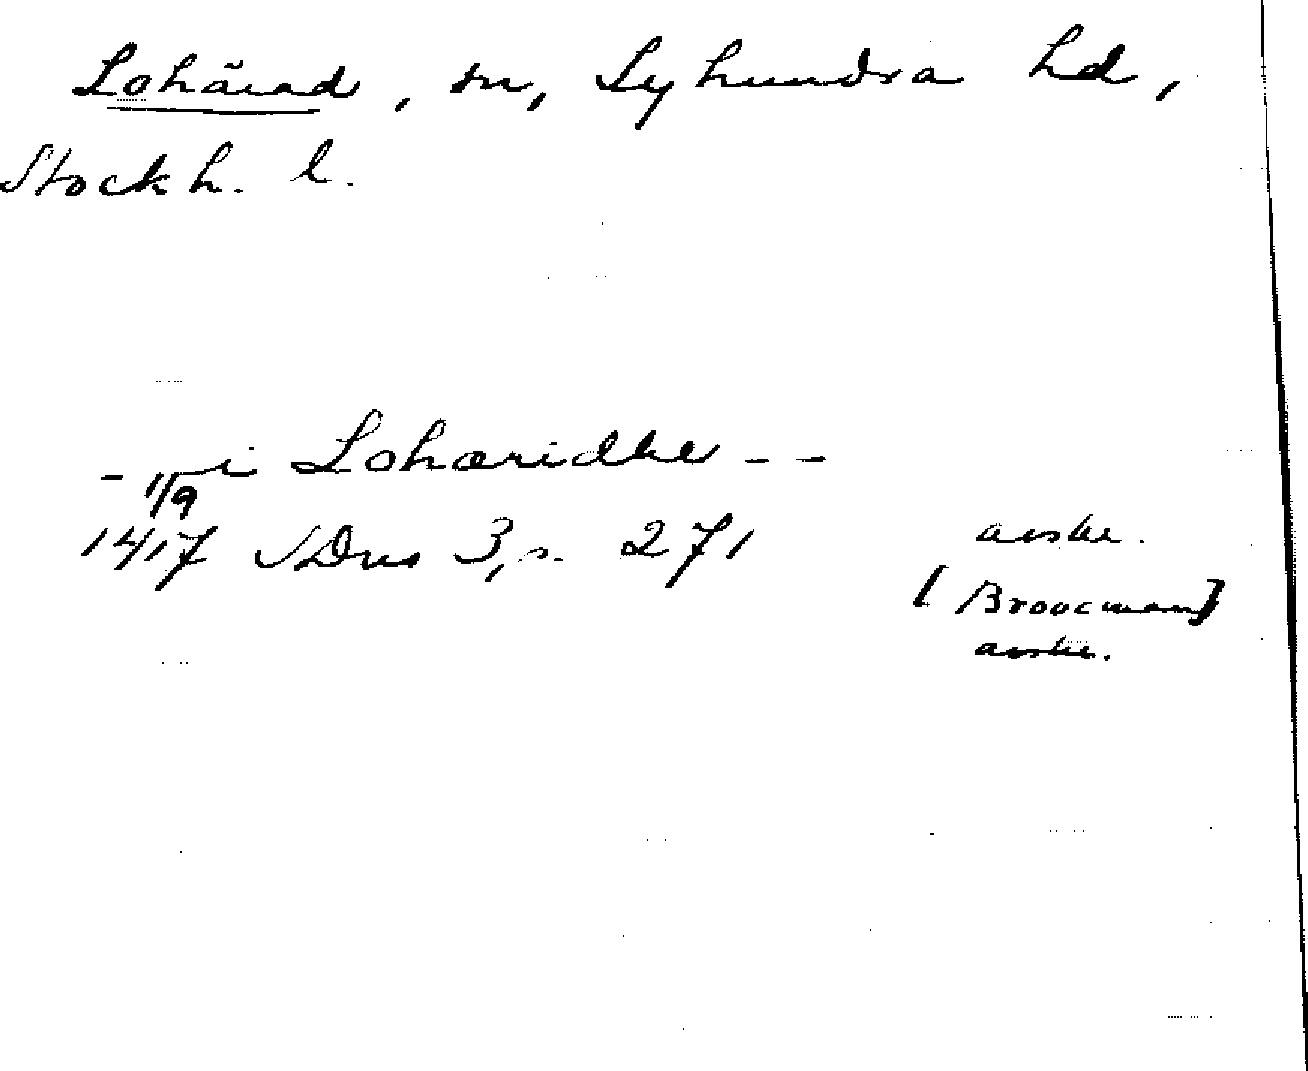 Lohärad, sn, Lyhundra hd,
Stockh. l.
- i Lohæridhe - -
1/9
1417 SDns 3, s. 271 avskr.
[Broocman]
avskr.